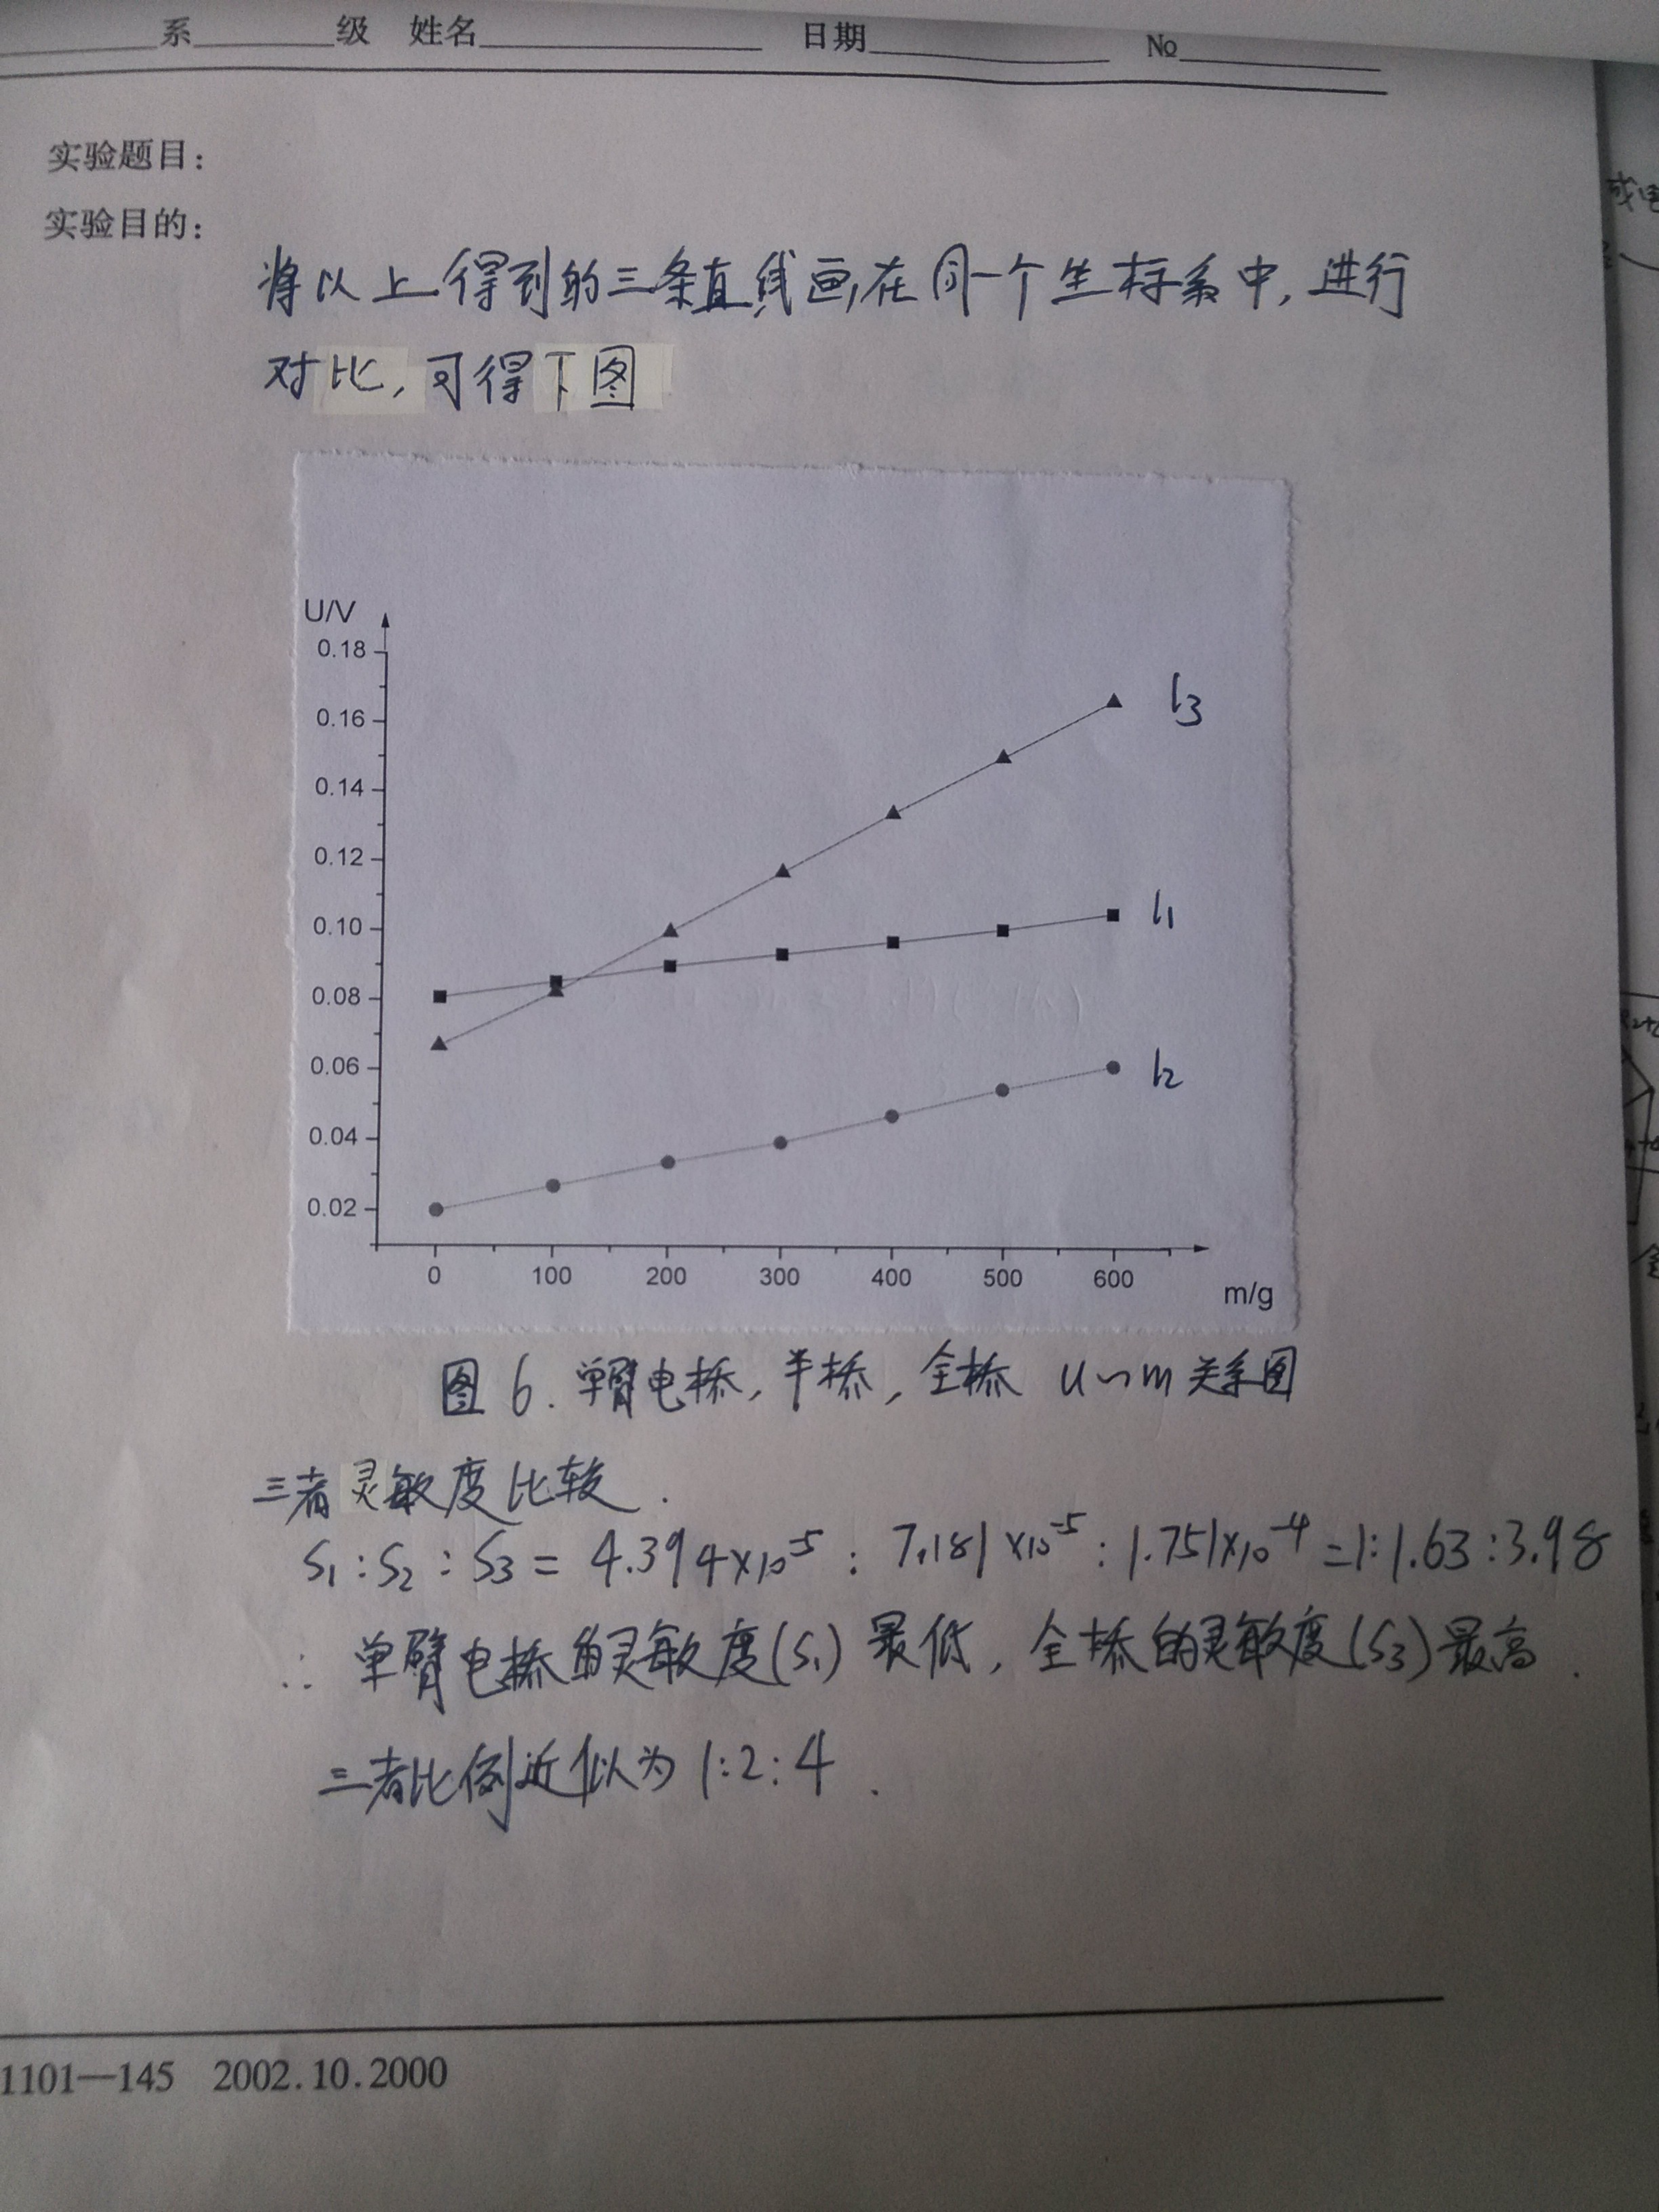 系 级 姓名 日期 №
实验题目：
实验目的：
将以上得到的三条直线画在同一个坐标系中，进行
对比，可得下图
U/V
0.18
0.16
0.14
0.12
0.10
0.08
0.06
0.04
0.02
l3
l1
l2
0 100 200 300 400 500 600
m/g
图6. 单臂电桥，半桥，全桥 U~m关系图
三者灵敏度比较.
S₁:S₂:S₃=4.394×10⁻⁵:7.181×10⁻⁵:1.751×10⁻⁴=1:1.63:3.98
∴ 单臂电桥的灵敏度(S₁)最低，全桥的灵敏度(S₃)最高.
三者比例近似为1:2:4.
1101—145 2002.10.2000